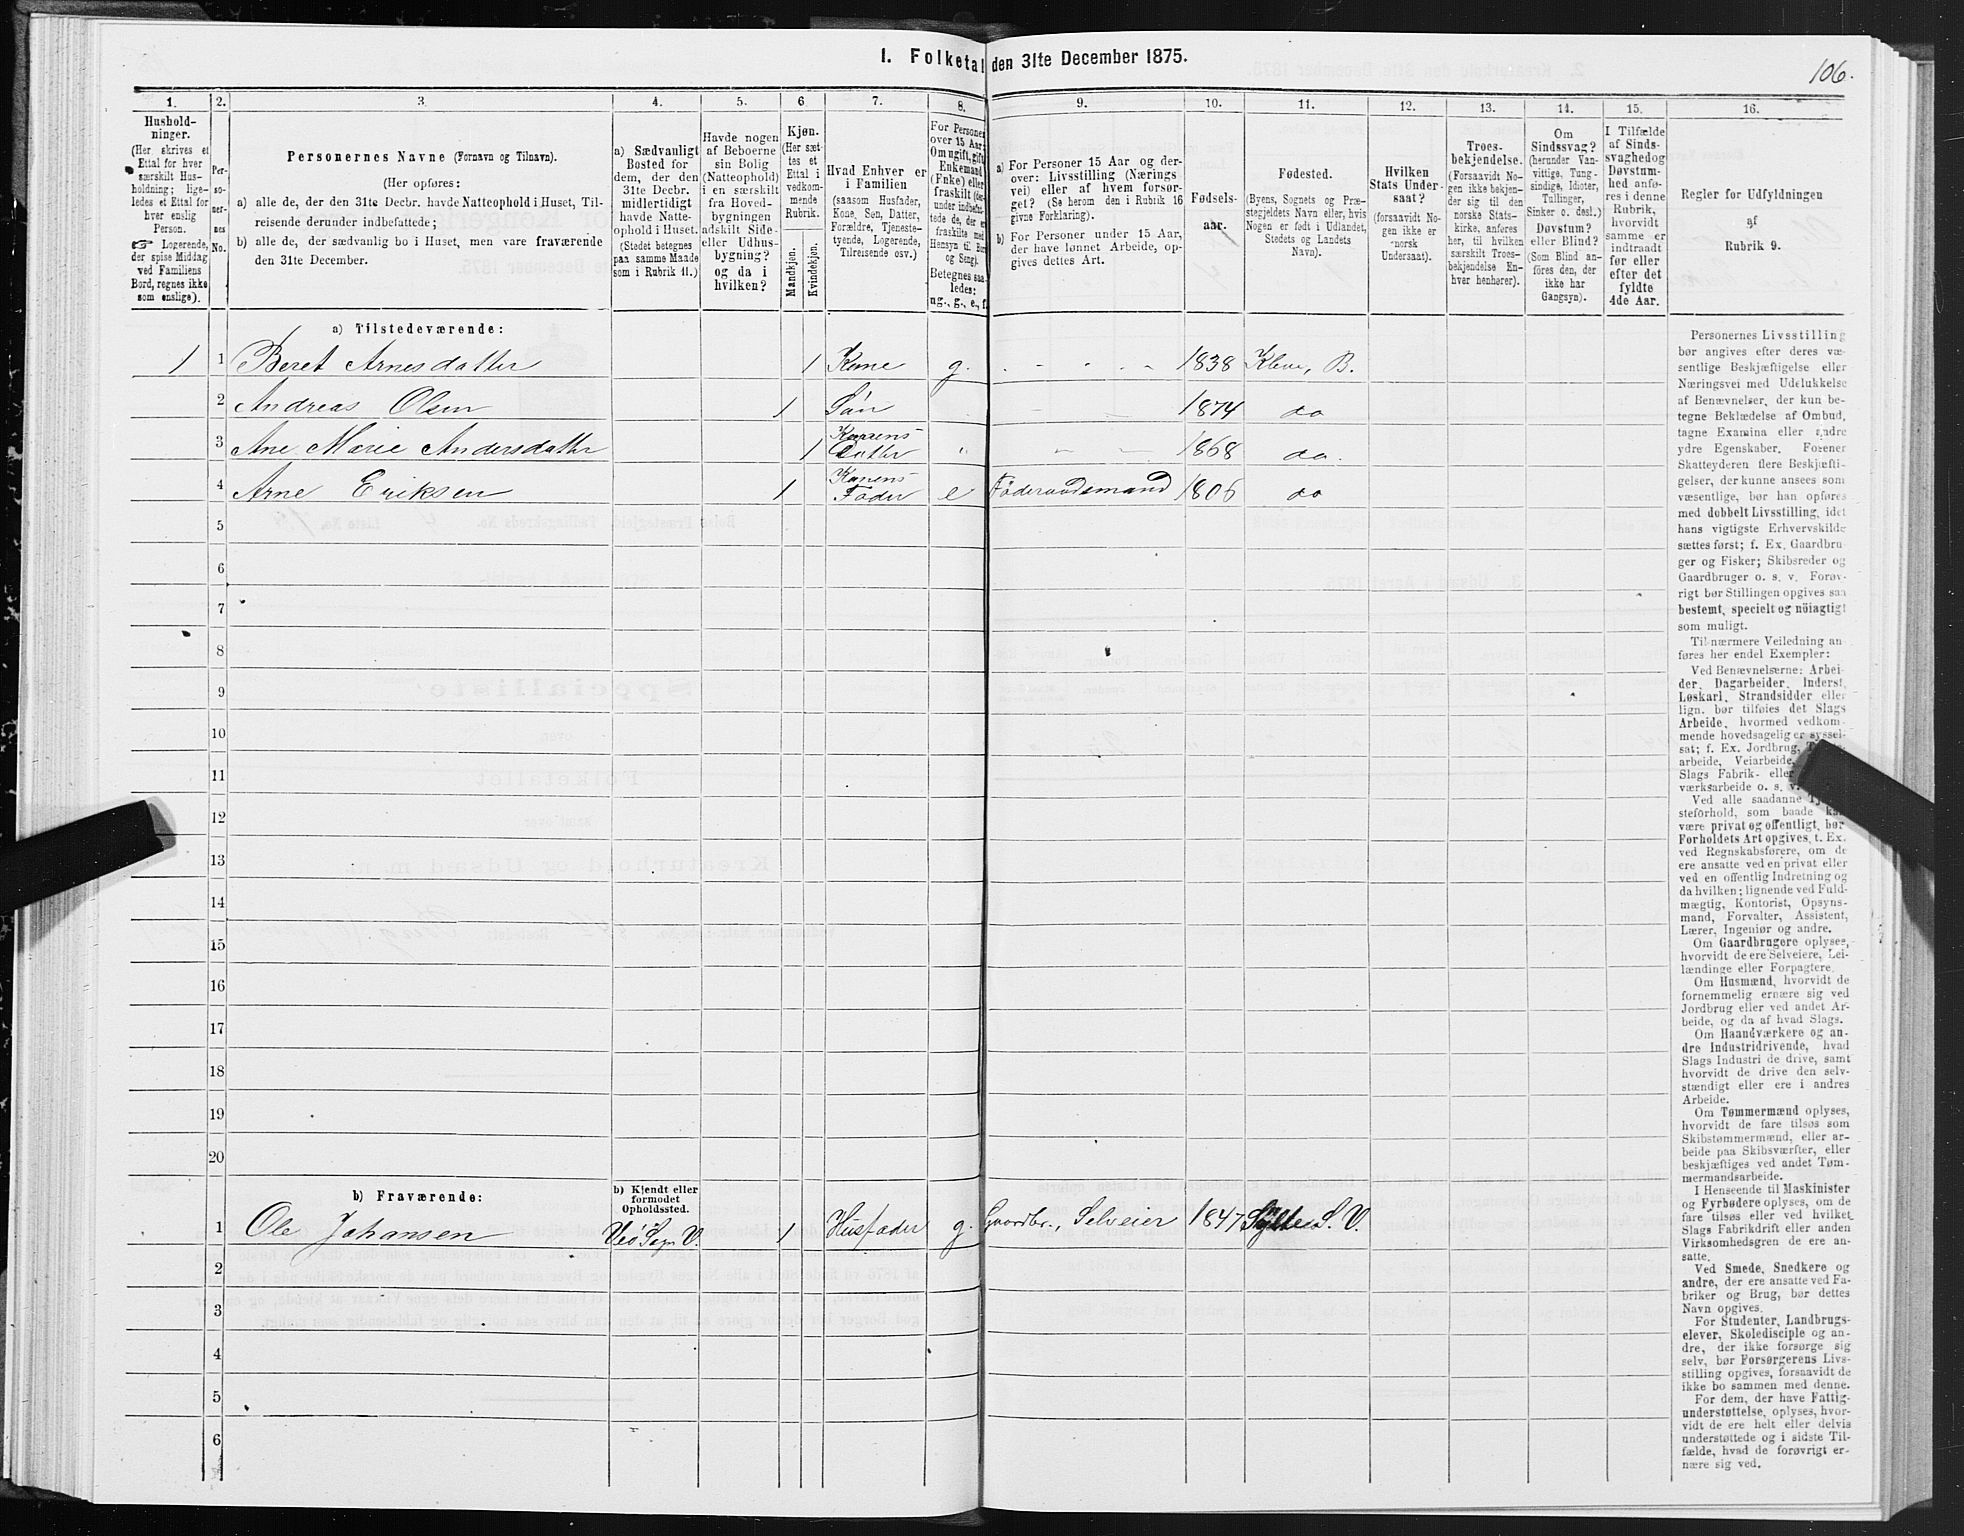 1. Folketal den 31te December 1875.
106.
1. 2. 3. 4. 5. 6. 7. 8. 9. 10. 11. 12. 13. 14. 15. 16.
Hushold-
ninger.
(Her skrives et
Ettal for hver
særskilt Hus-
holdning; lige-
ledes et Ettal for
hver enslig
Person.
☞ Logerende,
der spise Middag
ved Familiens
Bord, regnes ikke
som enslige).
Per-
so-
ner-
nes
No.
Personernes Navne (Fornavn og Tilnavn).
(Her opføres:
a) alle de, der den 31te Decbr. havde Natteophold i Huset, Til-
reisende derunder indbefattede;
b) alle de, der sædvanlig bo i Huset, men vare fraværende
den 31te December.
a) Sædvanligt
Bosted for
dem, der den
31te Decbr.
midlertidigt
havde Natte-
ophold i Huset.
(Stedet betegnes
paa samme Maade
som i Rubrik 11.)
Havde nogen
af Beboerne
sin Bolig
(Natteophold)
i en særskilt
fra Hoved-
bygningen
adskilt Side-
eller Udhus-
bygning?
og da i
hvilken?
Kjøn.
(Her sæt-
tes et
Ettal i
vedkom-
mende
Rubrik.
Mandkjøn.
Kvindekjøn.
Hvad Enhver er
i Familien
(saasom Husfader,
Kone, Søn, Datter,
Forældre, Tjeneste-
tyende, Logerende,
Tilreisende osv.)
For Personer
over 15 Aar:
Om ugift, gift,
Enkemand
(Enke) eller
fraskilt (der-
under indbefat-
tede de, der er
fraskilte med
Hensyn til Bord
og Seng).
Betegnes saa-
ledes:
ug., g., e., f.
a) For Personer 15 Aar og der-
over: Livsstilling (Nærings
vei) eller af hvem forsør-
get? (Se herom den i Rubrik 16
givne Forklaring).
b) For Personer under 15 Aar,
der have lønnet Arbeide, op-
gives dettes Art.
Fødsels-
aar.
Fødested.
(Byens, Sognets og Præ-
stegjeldets Navn eller, hvis
Nogen er født i Udlandet,
Stedets og Landets
Navn).
Hvilken
Stats Under-
saat?
(forsaavidt No-
gen ikke er
norsk
Undersaat).
Troes-
bekjendelse.
(Forsaavidt No-
gen ikke bekjen-
der sig til den
norske Stats-
kirke, anføres
her, til hvilken
særskilt Troes-
bekjendelse En-
hver henhører).
Om
Sindssvag?
(herunder Van-
vittige, Tung-
sindige, Idioter,
Tullinger,
Sinker o. desl.)
Døvstum?
eller Blind?
(Som Blind an-
føres den, der
ikke har
Gangsyn).
I Tilfælde
af Sinds-
svaghedog
Døvstum-
hed anfø-
res i denne
Rubrik,
hvorvidt
samme er
indtraadt
før eller
efter det
fyldte
4de Aar.
Regler for Udfyldningen
af
Rubrik 9.
a) Tilstedeværende:
1 1 Beret Arnesdatter 1 Kone g. 1838 Kleve, B.
2 Andreas Olsen 1 Søn 1874 do
3 Ane Marie Andersdatter 1 Konens Datter 1868 do.
4 Arne Eriksen 1 Konens Fader e Föderaadsmand 1806 do
5
6
7
8
9
10
11
12
13
14
15
16
17
18
19
20
b) Fraværende:
b) Kjendt eller
formodet
Opholdssted.
1 Ole Johansen Veö Sogn V. 1 Husfader g. Gaardbr., Selveier 1847 S. V.
2
3
4
5
6
Personernes Livsstilling
bør angives efter deres væ-
sentlige Beskjæftigelse eller
Næringsvei med Udelukkelse
af Benævnelser, der kun be-
tegne Beklædelse af Ombud,
tagne Examina eller andre
ydre Egenskaber. Forener
Skatteyderen flere Beskjæfti-
gelser, der kunne ansees som
væsentlige, bør han opføres
med dobbelt Livsstilling, idet
hans vigtigste Erhvervskilde
sættes først; f. Ex. Gaardbru-
ger og Fisker; Skibsreder og
Gaardbruger o. s. v. Forøv-
rigt bør Stillingen opgives saa
bestemt, specielt og nöiagtigt
som muligt.
Til nærmere Veiledning an-
føres her endel Exempler:
Ved Benævnelserne: Arbei-
der, Dagarbeider, Inderst,
Løskarl, Strandsidder eller
lign. bør tilføies det Slags
Arbeide, hvormed vedkom-
mende hovedsagelig er syssel-
sat; f. Ex. Jordbrug,
arbeide, Veiarbeide,
Slags Fabrik- eller
værksarbeide o. s. v.
Ved alle saadanne
steforhold, som baade
være privat og offentligt, bør
Forholdets Art opgives, t. Ex.
ved Regnskabsførere, om de
ere ansatte ved en privat eller
ved en offentlig Indretning og
da hvilken; lignende ved Fuld-
mægtig, Kontorist, Opsyns-
mand, Forvalter, Assistent,
Lærer, Ingeniør og andre.
Om Gaardbrugere oplyses,
hvorvidt de ere Selveiere, Lei-
lændinge eller Forpagtere.
Om Husmænd, hvorvidt de
fornemmelig ernære sig ved
Jordbrug eller ved andet Ar-
beide, og da af hvad Slags.
Om Haandværkere og an-
dre Industridrivende, hvad
Slags Industri de drive, samt
hvorvidt de drive den selv-
stændigt eller ere i andres
Arbeide.
Om Tømmermænd oplyses,
hvorvidt de fare tilsøs som
Skibstømmermænd, eller ar-
beide paa Skibsværfter, eller
beskjæftiges ved andet Tøm-
mermandsarbeide.
I Henseende til Maskinister
og Fyrbødere oplyses, om de
fare tilsøs eller ved hvilket
Slags Fabrikdrift eller anden
Virksomhedsgren de ere an-
satte.
Ved Smede, Snedkere og
andre, der ere ansatte ved Fa-
briker og Brug, bør dettes
Navn opgives.
For Studenter, Landbrugs-
elever, Skoledisciple og an-
dre, der ikke forsørge sig
selv, bør Forsørgerens Livs-
stilling opgives, forsaavidt de
ikke bo sammen med denne.
For dem, der have Fattig-
understøttelse, oplyses, hvor-
vidt de ere helt eller delvis
understøttede og i sidste Til-
fælde, hvad de forøvrigt er-
nære sig ved.